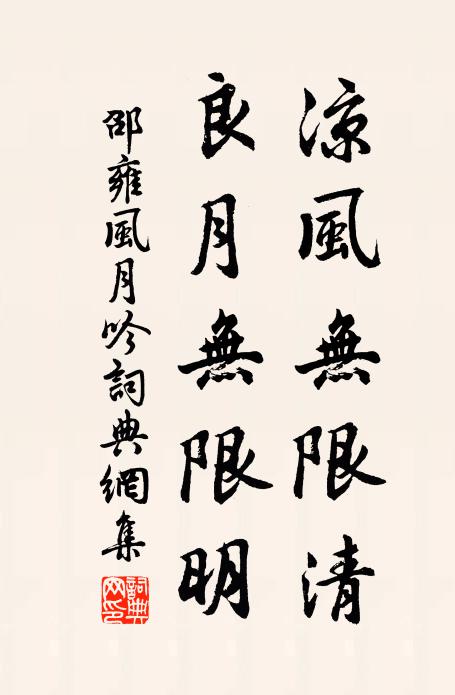 涼風無限清
良月無限明
邵雍風月吟詞典網集
詞典
网印